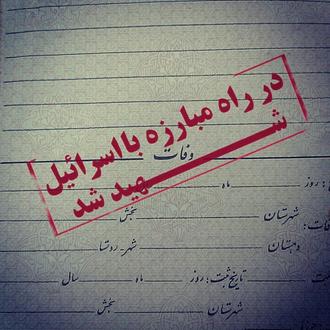 در راه مبارزه با اسرائیل
شهید شد
وفات
روز: ماه
شهرستان بخش
دهستان شهر-روستا
تاریخ ثبت: روز ماه سال
شهرستان بخش